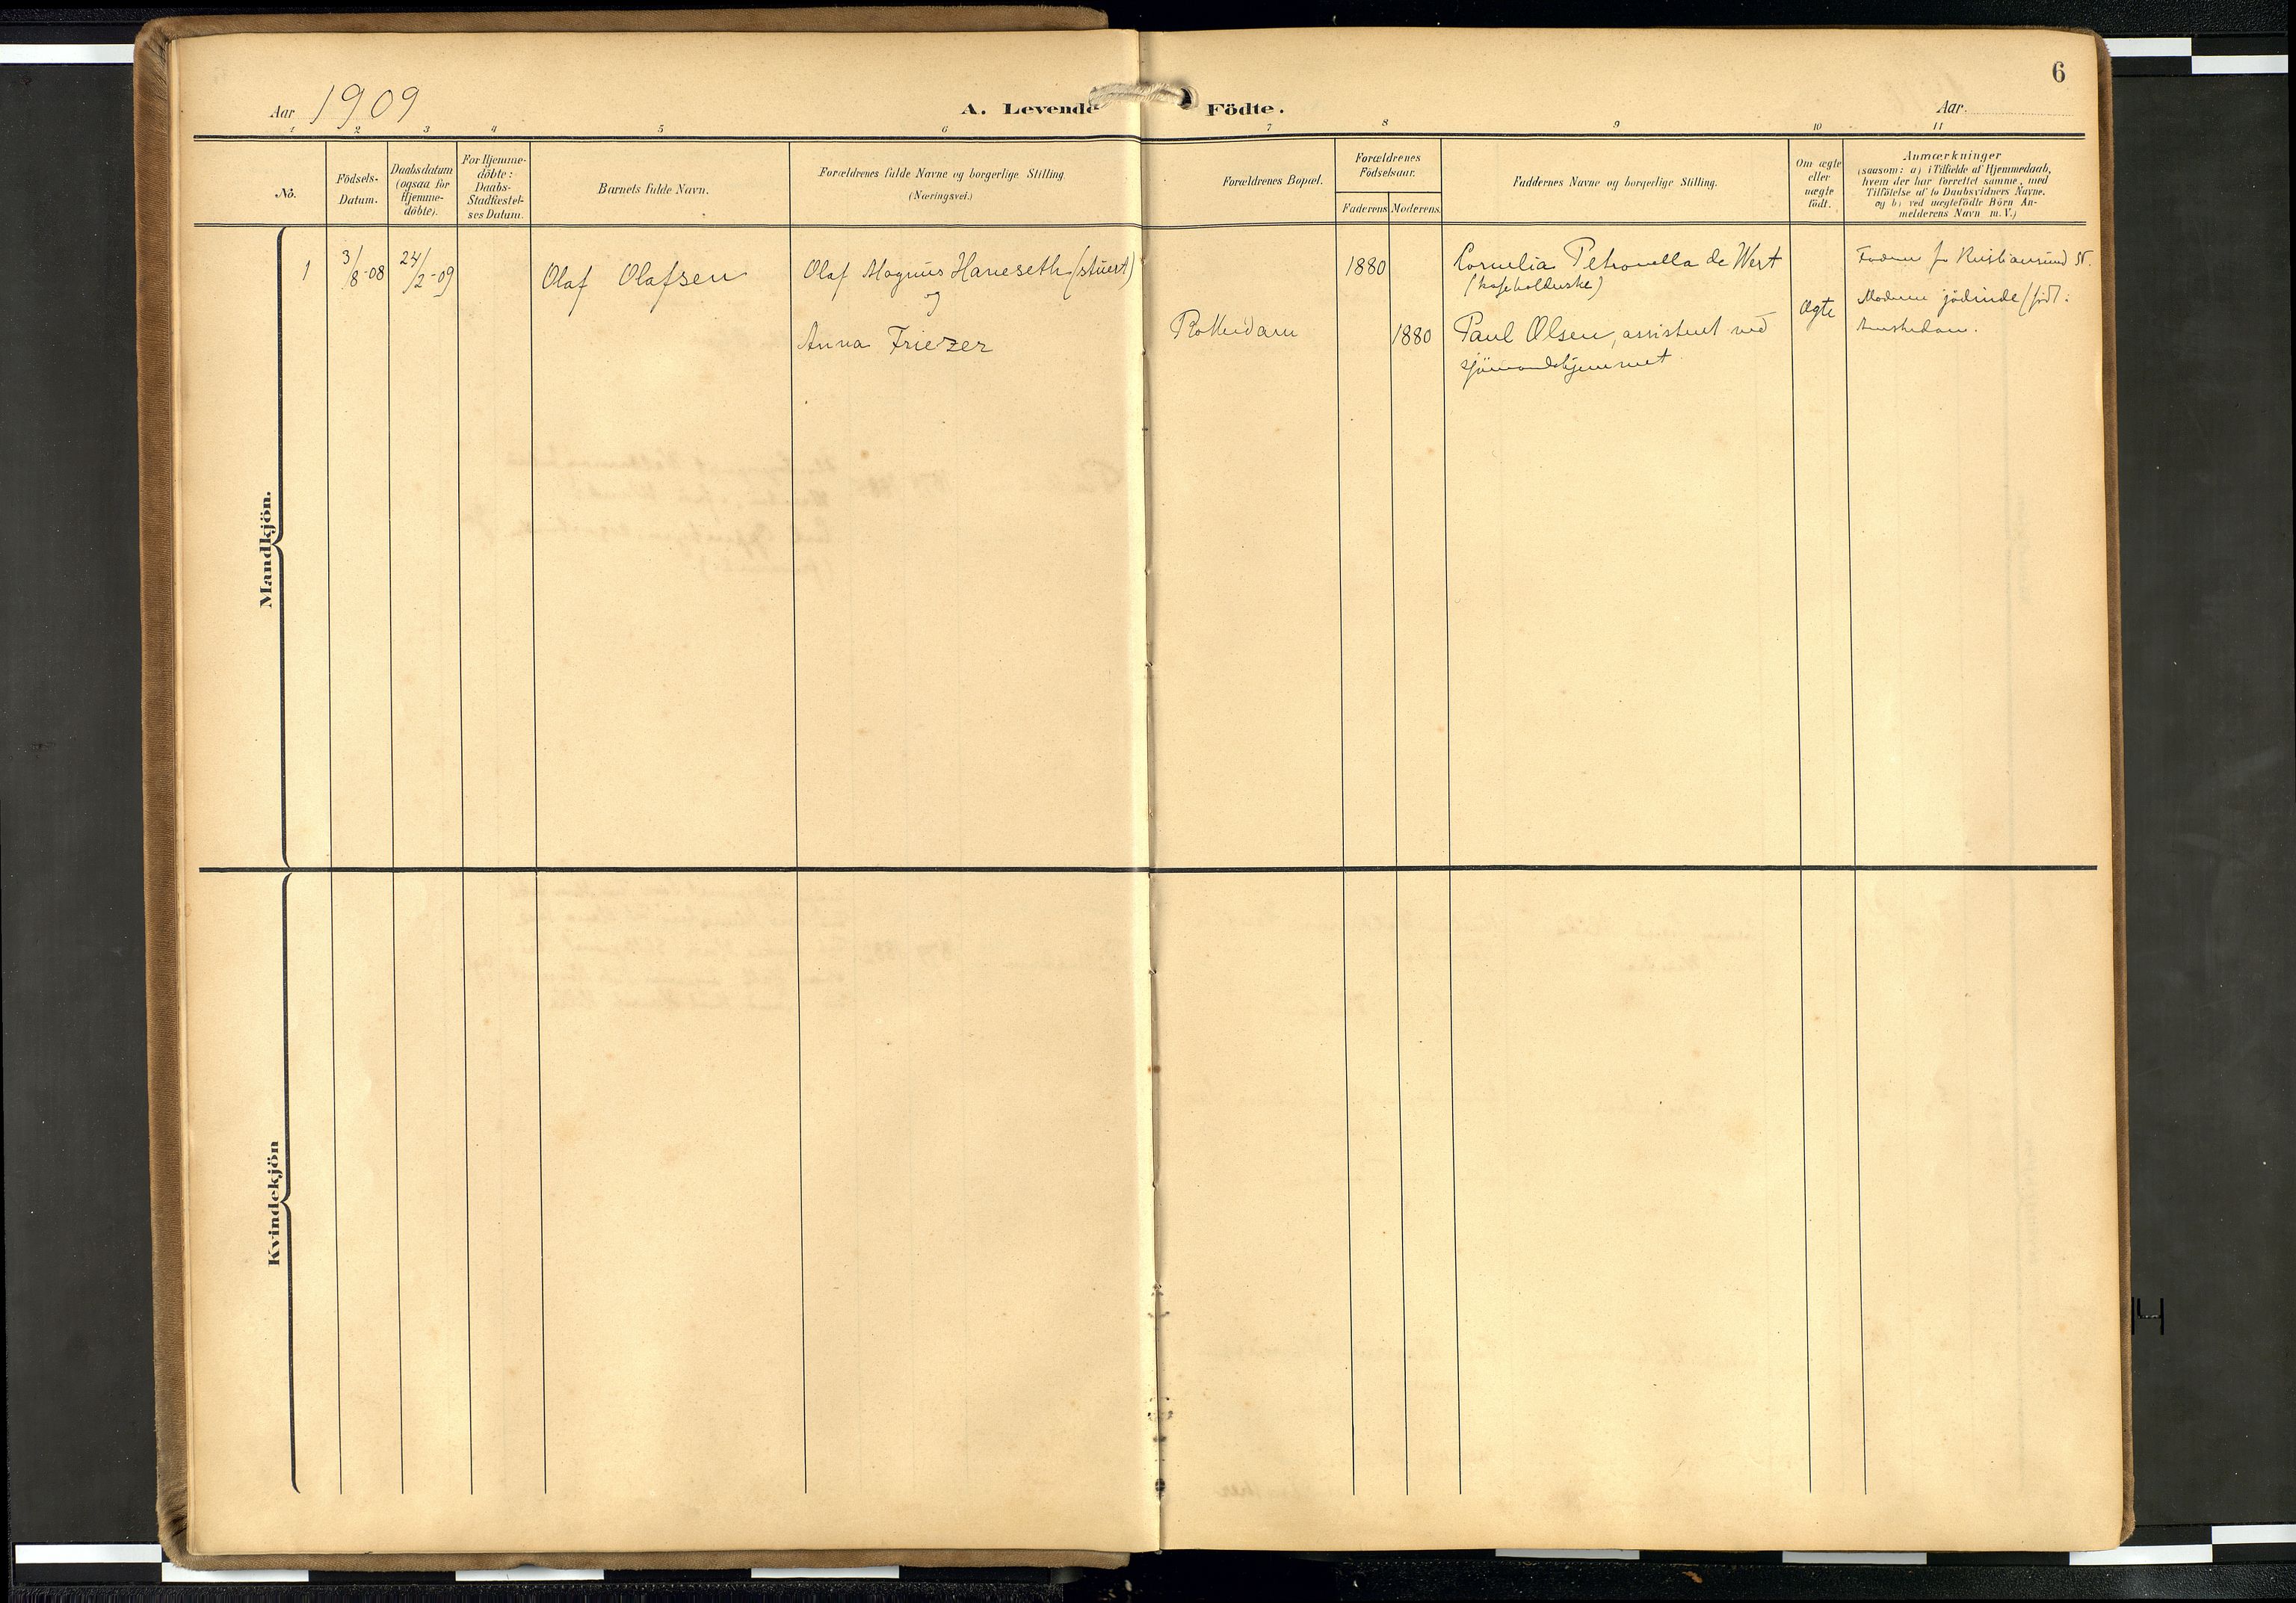 6
Aar 1909
A. Levende Födte.
Aar.
1 2 3 4 5 6 7 8 9 10 11
No.
Födsels-
Datum.
Daabsdatum
(ogsaa for
Hjemme-
döbte).
For Hjemme-
döbte:
Daabs-
Stadfæstel-
ses Datum.
Barnets fulde Navn.
Forældrenes fulde Navne og borgerlige Stilling.
(Næringsvei.)
Forældrenes Bopæl.
Forældrenes
Födselsaar.
Faderens Moderens.
Faddernes Navne og borgerlige Stilling.
Om ægte
eller
uægte
födt.
Anmærkninger
(saasom: a) i Tilfælde af Hjemmedaab,
hvem der har forrettet samme, med
Tilföielse af to Daabsvidners Navne.
og b) ved uægtefödte Börn An-
melderens Navn m. V.)
Mandkjön.
1
3/8-08
24/2-09
Olaf Olafsen
Olaf Magnus Haneseth (stuert)
og
Anna Friezer
Rotterdam
1880
1880
Cornelia Petronella de Wert
Paul Olsen, assistent ved
sjömandshjemmet
Ægte
Faderen fr Kristiansund N.
Moderen jödinde (född:
Amsterdam.
Kvindekjön